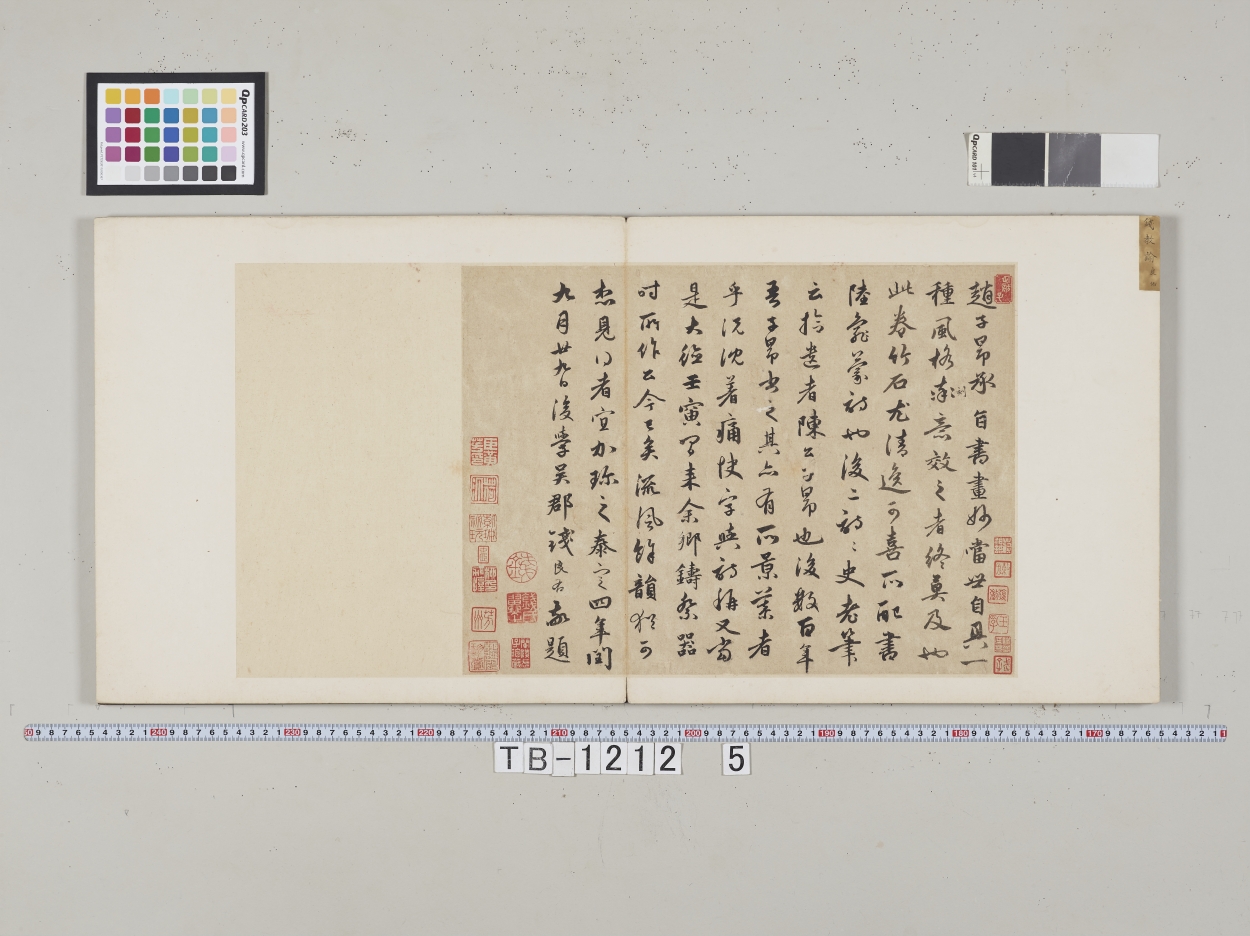 趙子昂承旨書畫妙當世自具一
種風格意效之者終莫及也
此卷竹石尤清逸可喜所配書
陸龜蒙詩也後二詩史老筆
云拾遺者陳公子昂也後數百年
吾子昂書之其亦有所景慕者
乎況沈着痛快字與詩稱又當
是大德壬寅間來余鄉鑄祭器
時所作公今已矣流風餘韻猶可
想見得者宜加珍之泰定四年閏
九月廿九日後學吳郡錢良右敬題
QPCARD 203
QPCARD 101
TB-1212 5